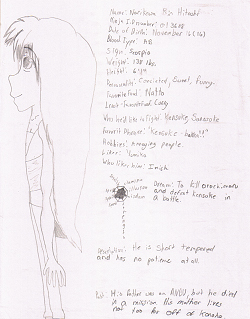 Name: Hitoshi
Ninja I.D number:
Date of Birth: November 16 (16)
Blood Type: AB
Sign: Scorpio
Weight: 138 lbs
Height:
Personality: Conceited, Quiet, Funny.
Favorite Food: Natto
Least: Curry
Who he'd like to fight: Kensuke, Sasuke
Favorite Phrase: "Kensuke
Hobbies: Annoying people
Likes: Yumiko
Who likes him:
Dream: To kill orochimaru
and defeat kensuke in
a battle.
Description: He is short tempered
and has no patience at all.
Past: His Father was an ANBU, but he died
in a mission his mother lives
not too far off of Konoha.